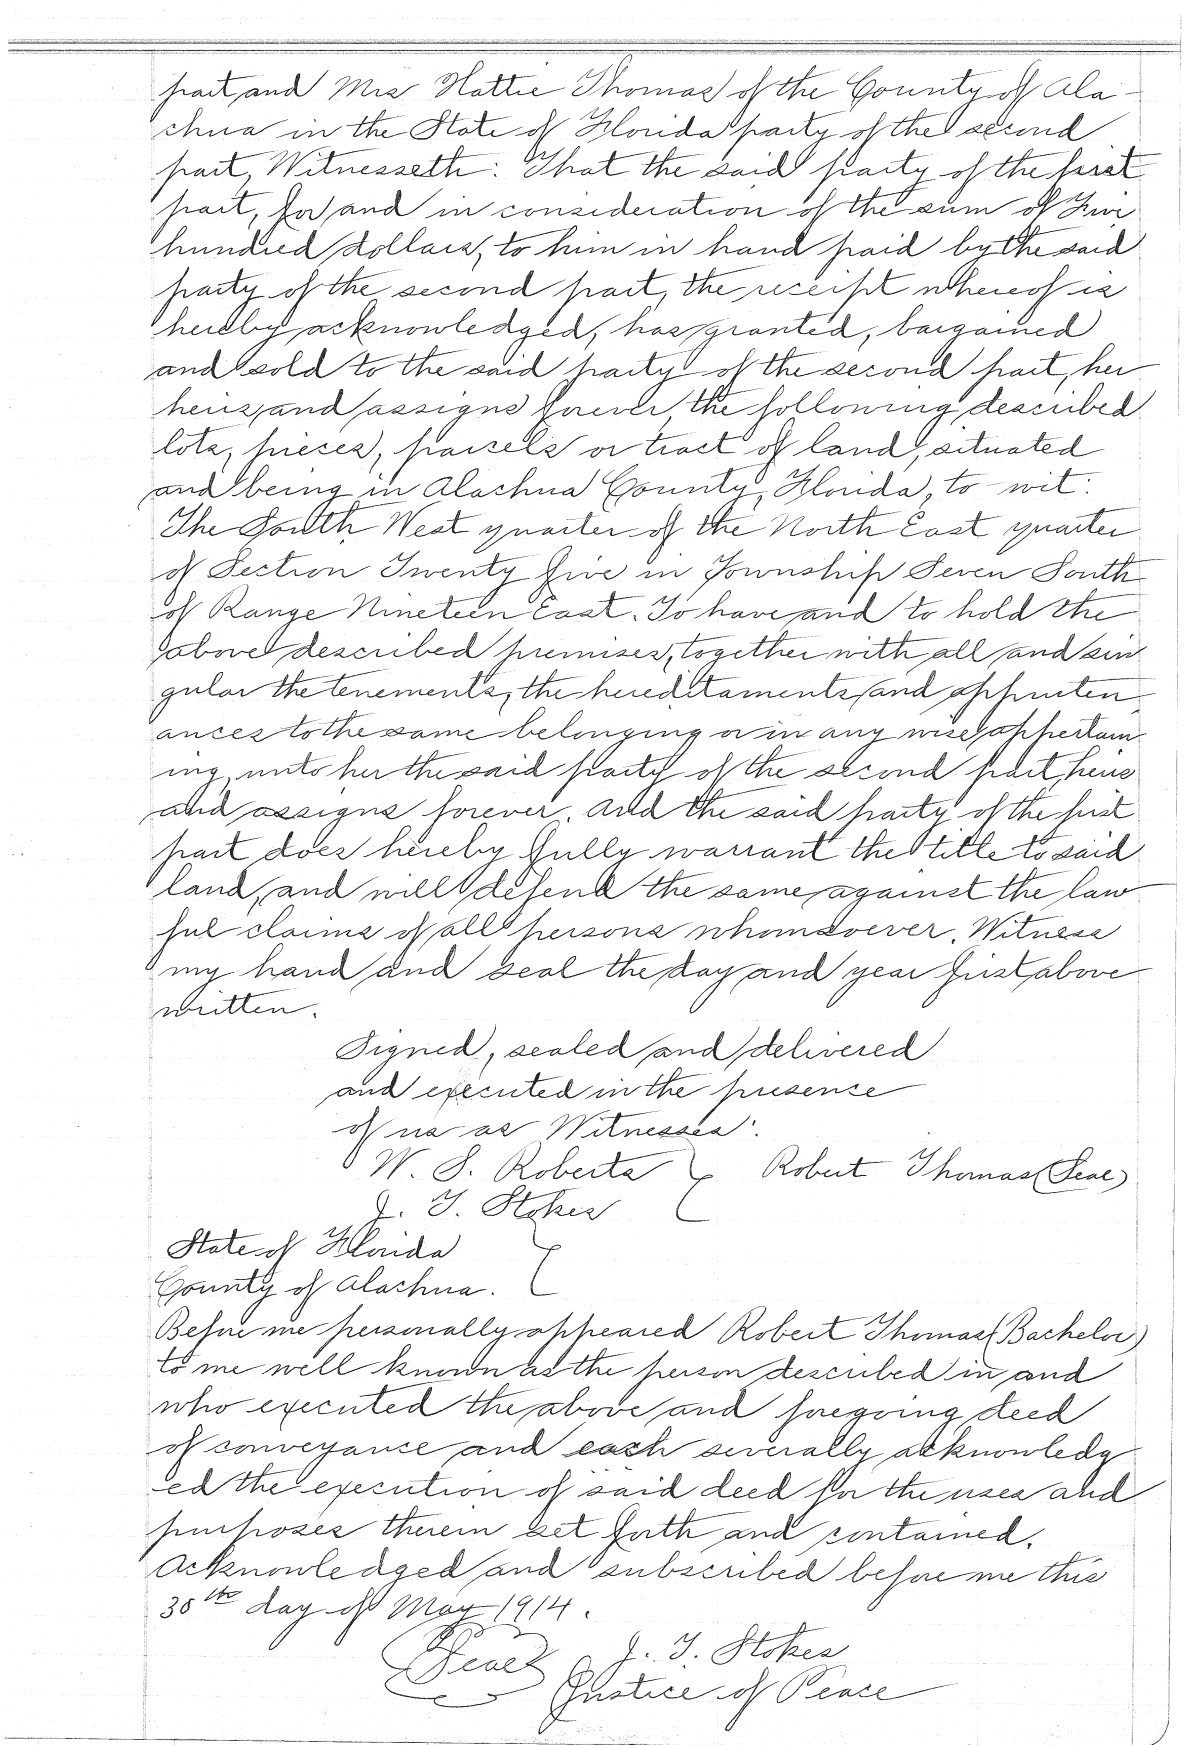 part, and Mrs Hattie Thomas of the County of Ala-
chua in the State of Florida party of the second
part, Witnesseth: That the said party of the first
part, for and in consideration of the sum of Five
hundred dollars, to him in hand paid by the said
party of the second part, the receipt whereof is
hereby acknowledged, has granted, bargained
and sold to the said party of the second part, her
heirs and assigns forever, the following described
lots, pieces, parcels or tract of land, situated
and being in Alachua County, Florida, to-wit:
The South West quarter of the North East quarter
of Section Twenty five in Township Seven South
of Range Nineteen East. To have and to hold the
above described premises, together with all and sin
gular the tenements, the hereditaments and appurten
ances to the same belonging or in any wise appertain
ing, unto her the said party of the second part, heirs
and assigns forever. And the said party of the first
part does hereby fully warrant the title to said
land, and will defend the same against the law
ful claims of all persons whomsoever. Witness
my hand and seal the day and year first above
written.
Signed, sealed and delivered
and executed in the presence
of us as Witnesses:
W. S. Roberts } Robert Thomas (Seal)
J. T. Stokes
State of Florida }
County of Alachua.
Before me personally appeared Robert Thomas (Bachelor)
to me well known as the person described in and
who executed the above and foregoing deed
of conveyance and each severally acknowledg
ed the execution of said deed for the uses and
purposes therein set forth and contained.
Acknowledged and subscribed before me this
30th day of May 1914.
(Seal) J. T. Stokes
Justice of Peace